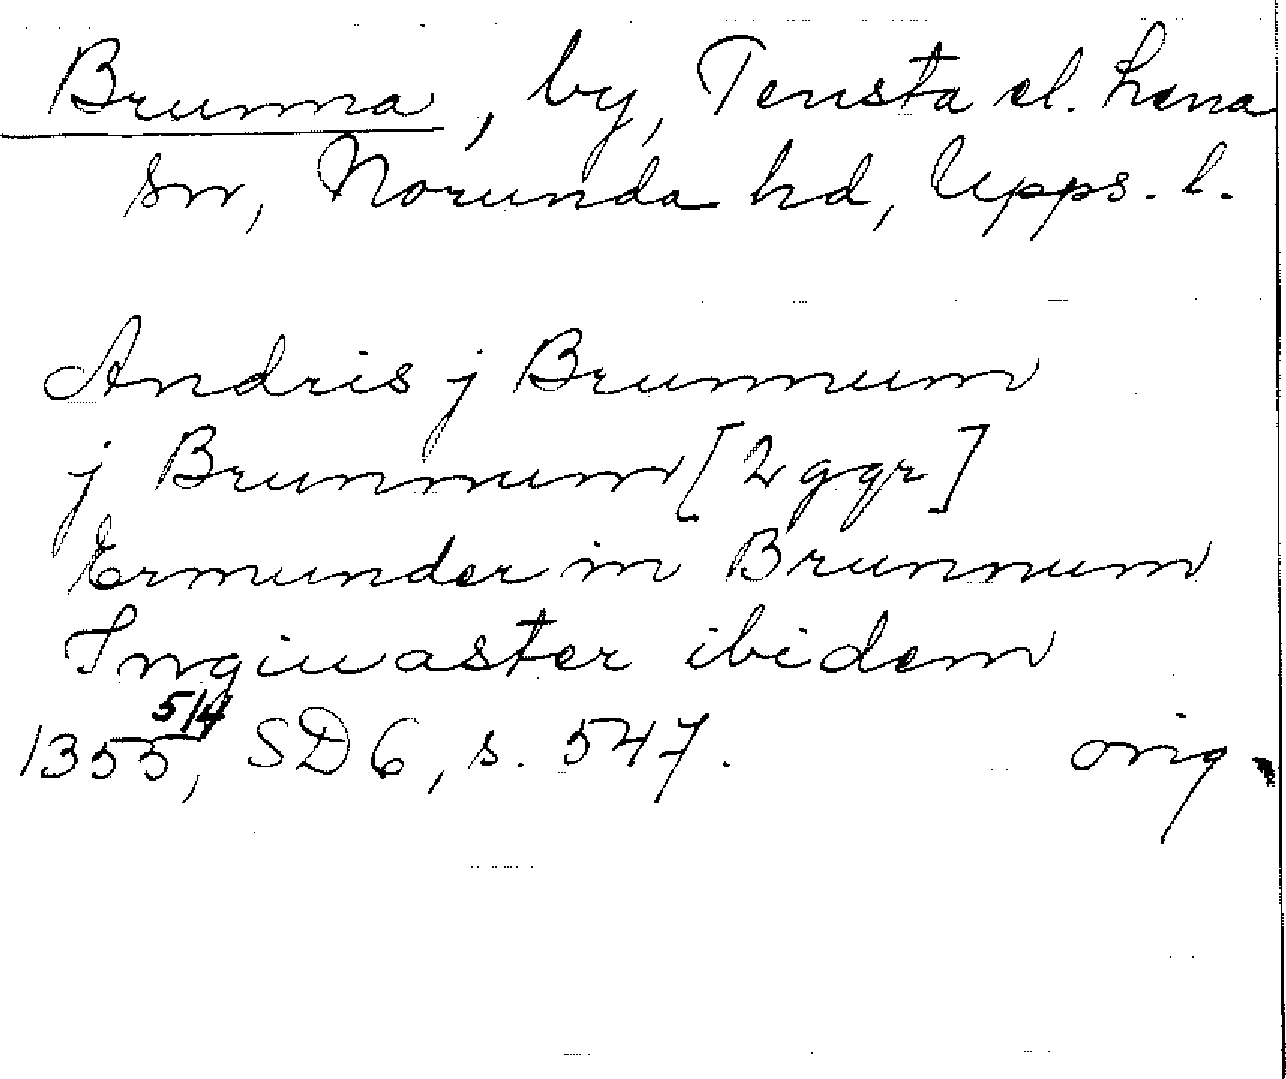 Brunna, by, Tensta el. Lena
sn, Norunda hd, Upps. l.
Andris j Brunnum
j Brunnum [2 ggr]
Ermunder in Brunnum
Ingiuaster ibidem
1355 5/4, SD 6, s. 547. orig.